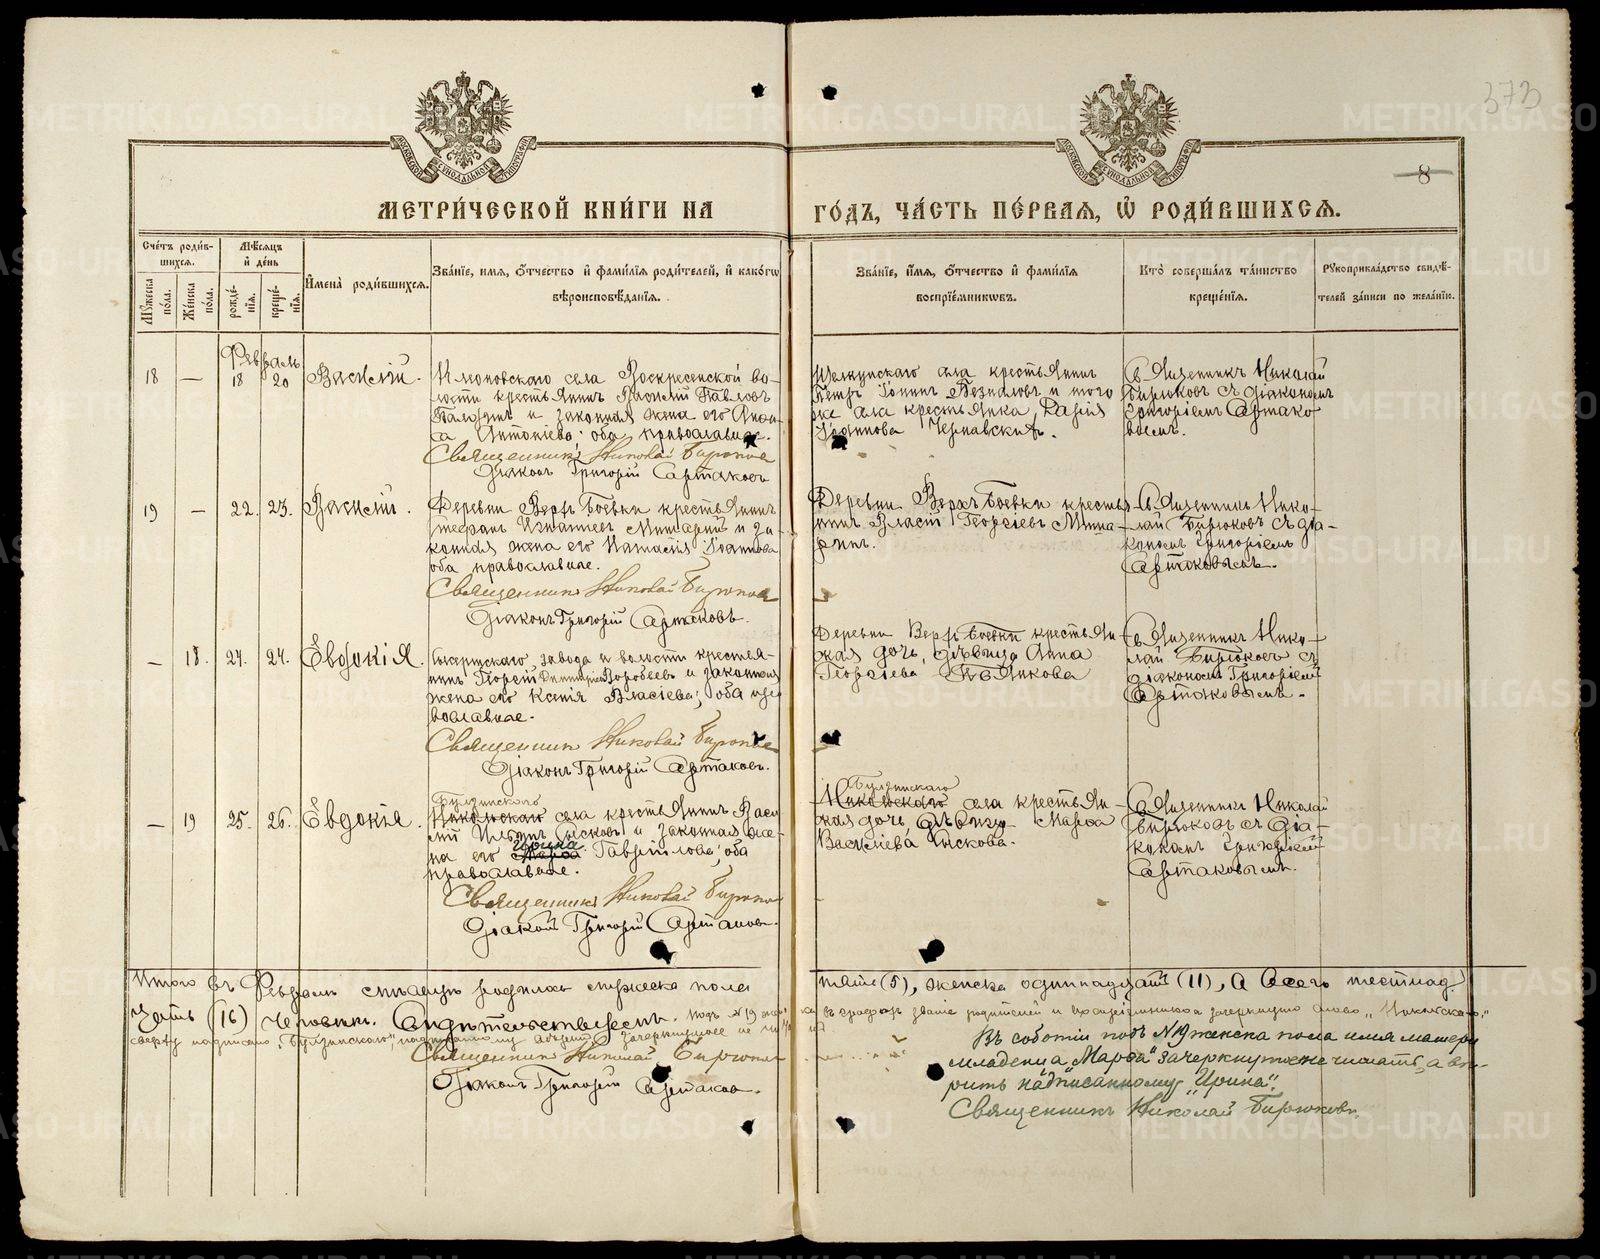 373
8
МОСКОВСКОЙ СѴНОДАЛЬНОЙ ТИПОГРАФІИ
МЕТРИЧЕСКОЙ КНИГИ НА
ГОДЪ, ЧАСТЬ ПЕРВАЯ, Ѡ РОДИВШИХСЯ.
Счетъ родив-
шихся.
Мѣсяцъ
и день
Мужеска
пола.
Женска
пола.
рожде-
нія.
креще-
нія.
Имена родившихся.
Званіе, имя, отчество и фамилія родителей, и какогѡ
вѣроисповѣданія.
Званіе, имя, отчество и фамилія
воспріемникѡвъ.
Кто совершалъ таинство
крещенія.
Рукоприкладство свидѣ-
телей записи по желанію.
Февраль
18 — 18 20 Василій.
села Воскресенской во-
лости крестьянинъ Василій Павловъ
и законная жена его
Антоніева; оба православные.
Священникъ Николай Бирюковъ
Діаконъ Григорій Сартаковъ
села крестьянинъ
Петръ и того
же села крестьянка Дарія
Іоаннова
Священникъ Николай
Бирюковъ съ діакономъ
Григоріемъ Сартако
вымъ.
19 — 22. 23. Василій.
Деревни Верхъ Боевки крестьянинъ
Стефанъ Игнатіевъ и за-
конная жена его Наталія Іоаннова
оба православные.
Священникъ Николай Бирюковъ
Діаконъ Григорій Сартаковъ.
Деревни Верхъ Боевки крестья-
нинъ Власій Георгіевъ Мина-
ринъ.
Священникъ Нико-
лай Бирюковъ съ діа-
кономъ Григоріемъ
Сартаковымъ.
— 18. 24. 24. Евдокія.
Сысертскаго завода и волости крестья-
нинъ Георгій Димитріевъ Воробьевъ и законная
жена его Ксенія Власіева; оба пра-
вославные.
Священникъ Николай Бирюковъ
Діаконъ Григорій Сартаковъ.
Деревни Верхъ Боевки крестьян-
ская дочь, дѣвица Анна
Георгіева Пьянкова
Священникъ Нико-
лай Бирюковъ съ
діакономъ Григоріемъ
Сартаковымъ.
— 19 25. 26. Евдокія.
Булзинскаго
Никольскаго села крестьянинъ Васи-
лій Ильинъ Сысковъ и законная же-
Ирина
на его Марѳа Гавріилова; оба
православные.
Священникъ Николай Бирюковъ
Діаконъ Григорій Сартаковъ.
Булзинскаго
Никольскаго села крестьян-
ская дочь, дѣвица Марѳа
Василіева Сыскова.
Священникъ Николай
Бирюковъ съ діа-
кономъ Григоріемъ
Сартаковымъ.
Итого въ Февралѣ мѣсяцѣ родилось мужеска пола
пять (5), женска одиннадцать (11), а всего шестнад-
цать (16) человѣкъ. Свидѣтельствуемъ. Подъ № 19 женска
въ графахъ званіе родителей и воспріемниковъ зачеркнуто слово „Никольскаго,"
сверху надписано „Булзинскаго",
Священникъ Николай Бирюковъ
Діаконъ Григорій Сартаковъ.
Въ событіи подъ № 19 женска пола имя матери
младенца „Марѳа" зачеркнутое не читать, а вѣ-
рить надписанному „Ирина".
Священникъ Николай Бирюковъ.
METRIKI.GASO-URAL.RU